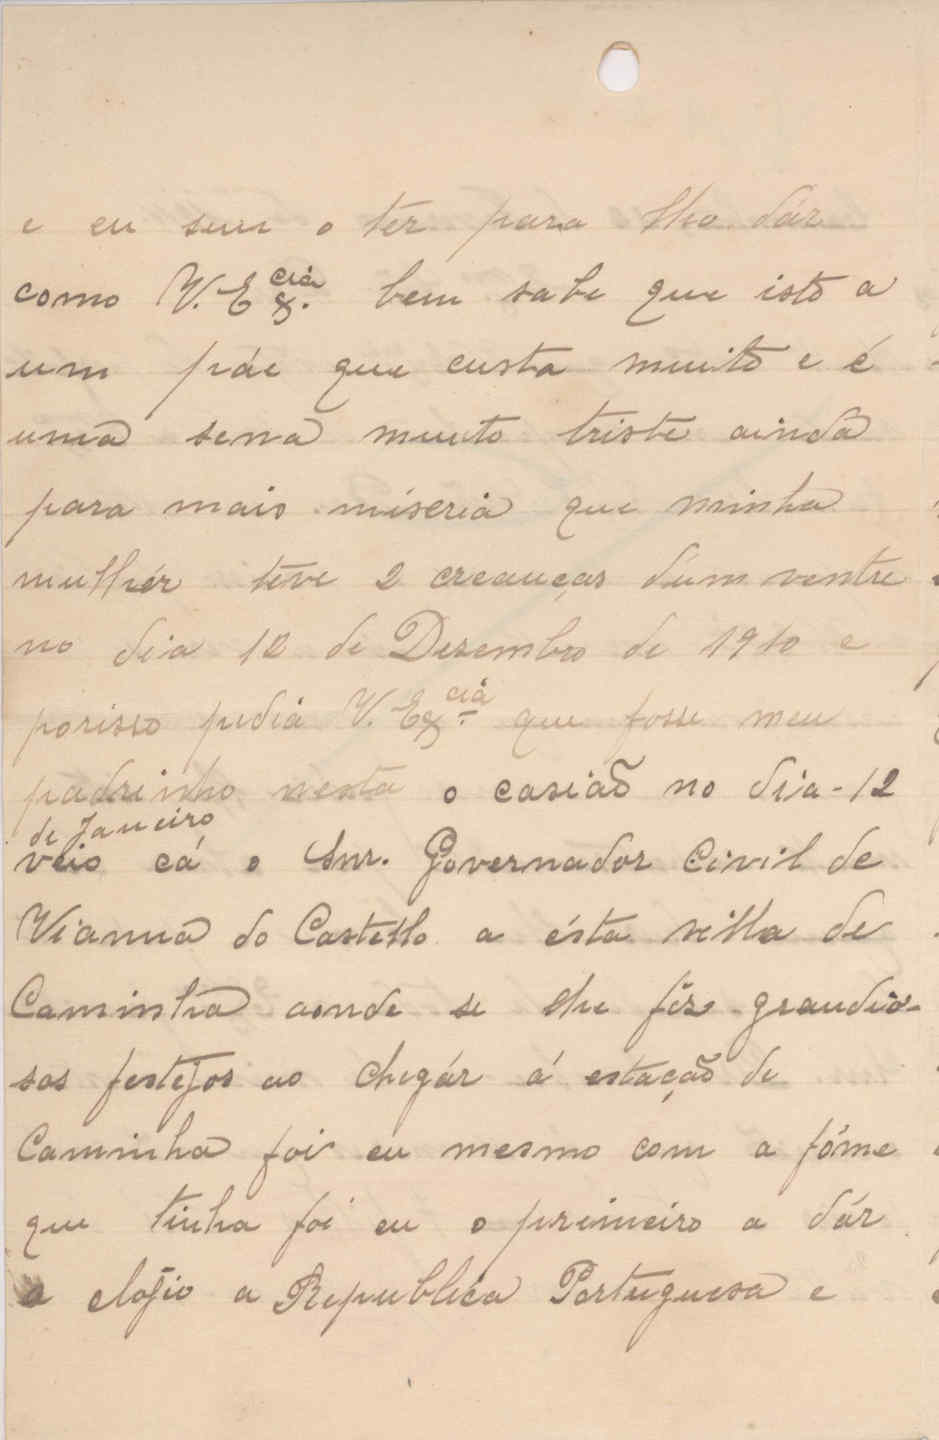 e eu sem o ter para lho dár
como V. Excia. bem sabe que isto a
um páe que custa muito e é
uma sena muito triste ainda
para mais míseria que minha
mulhér teve 2 creanças dúm ventre
no dia 12 de Dezembro de 1910 e
porisso pedia V. Excia. que fosse meu
padrinho nesta o casião no dia - 12
de Janeiro
veio cá o Snr. Governador Civil de
Vianna do Castello a ésta villa de
Caminha aonde se lhe fêz grandio-
sos festejos ao chegár á estação de
Caminha foi eu mesmo com a fóme
que tinha foi eu o primeiro a dár
o elogio a Republica Portuguesa e